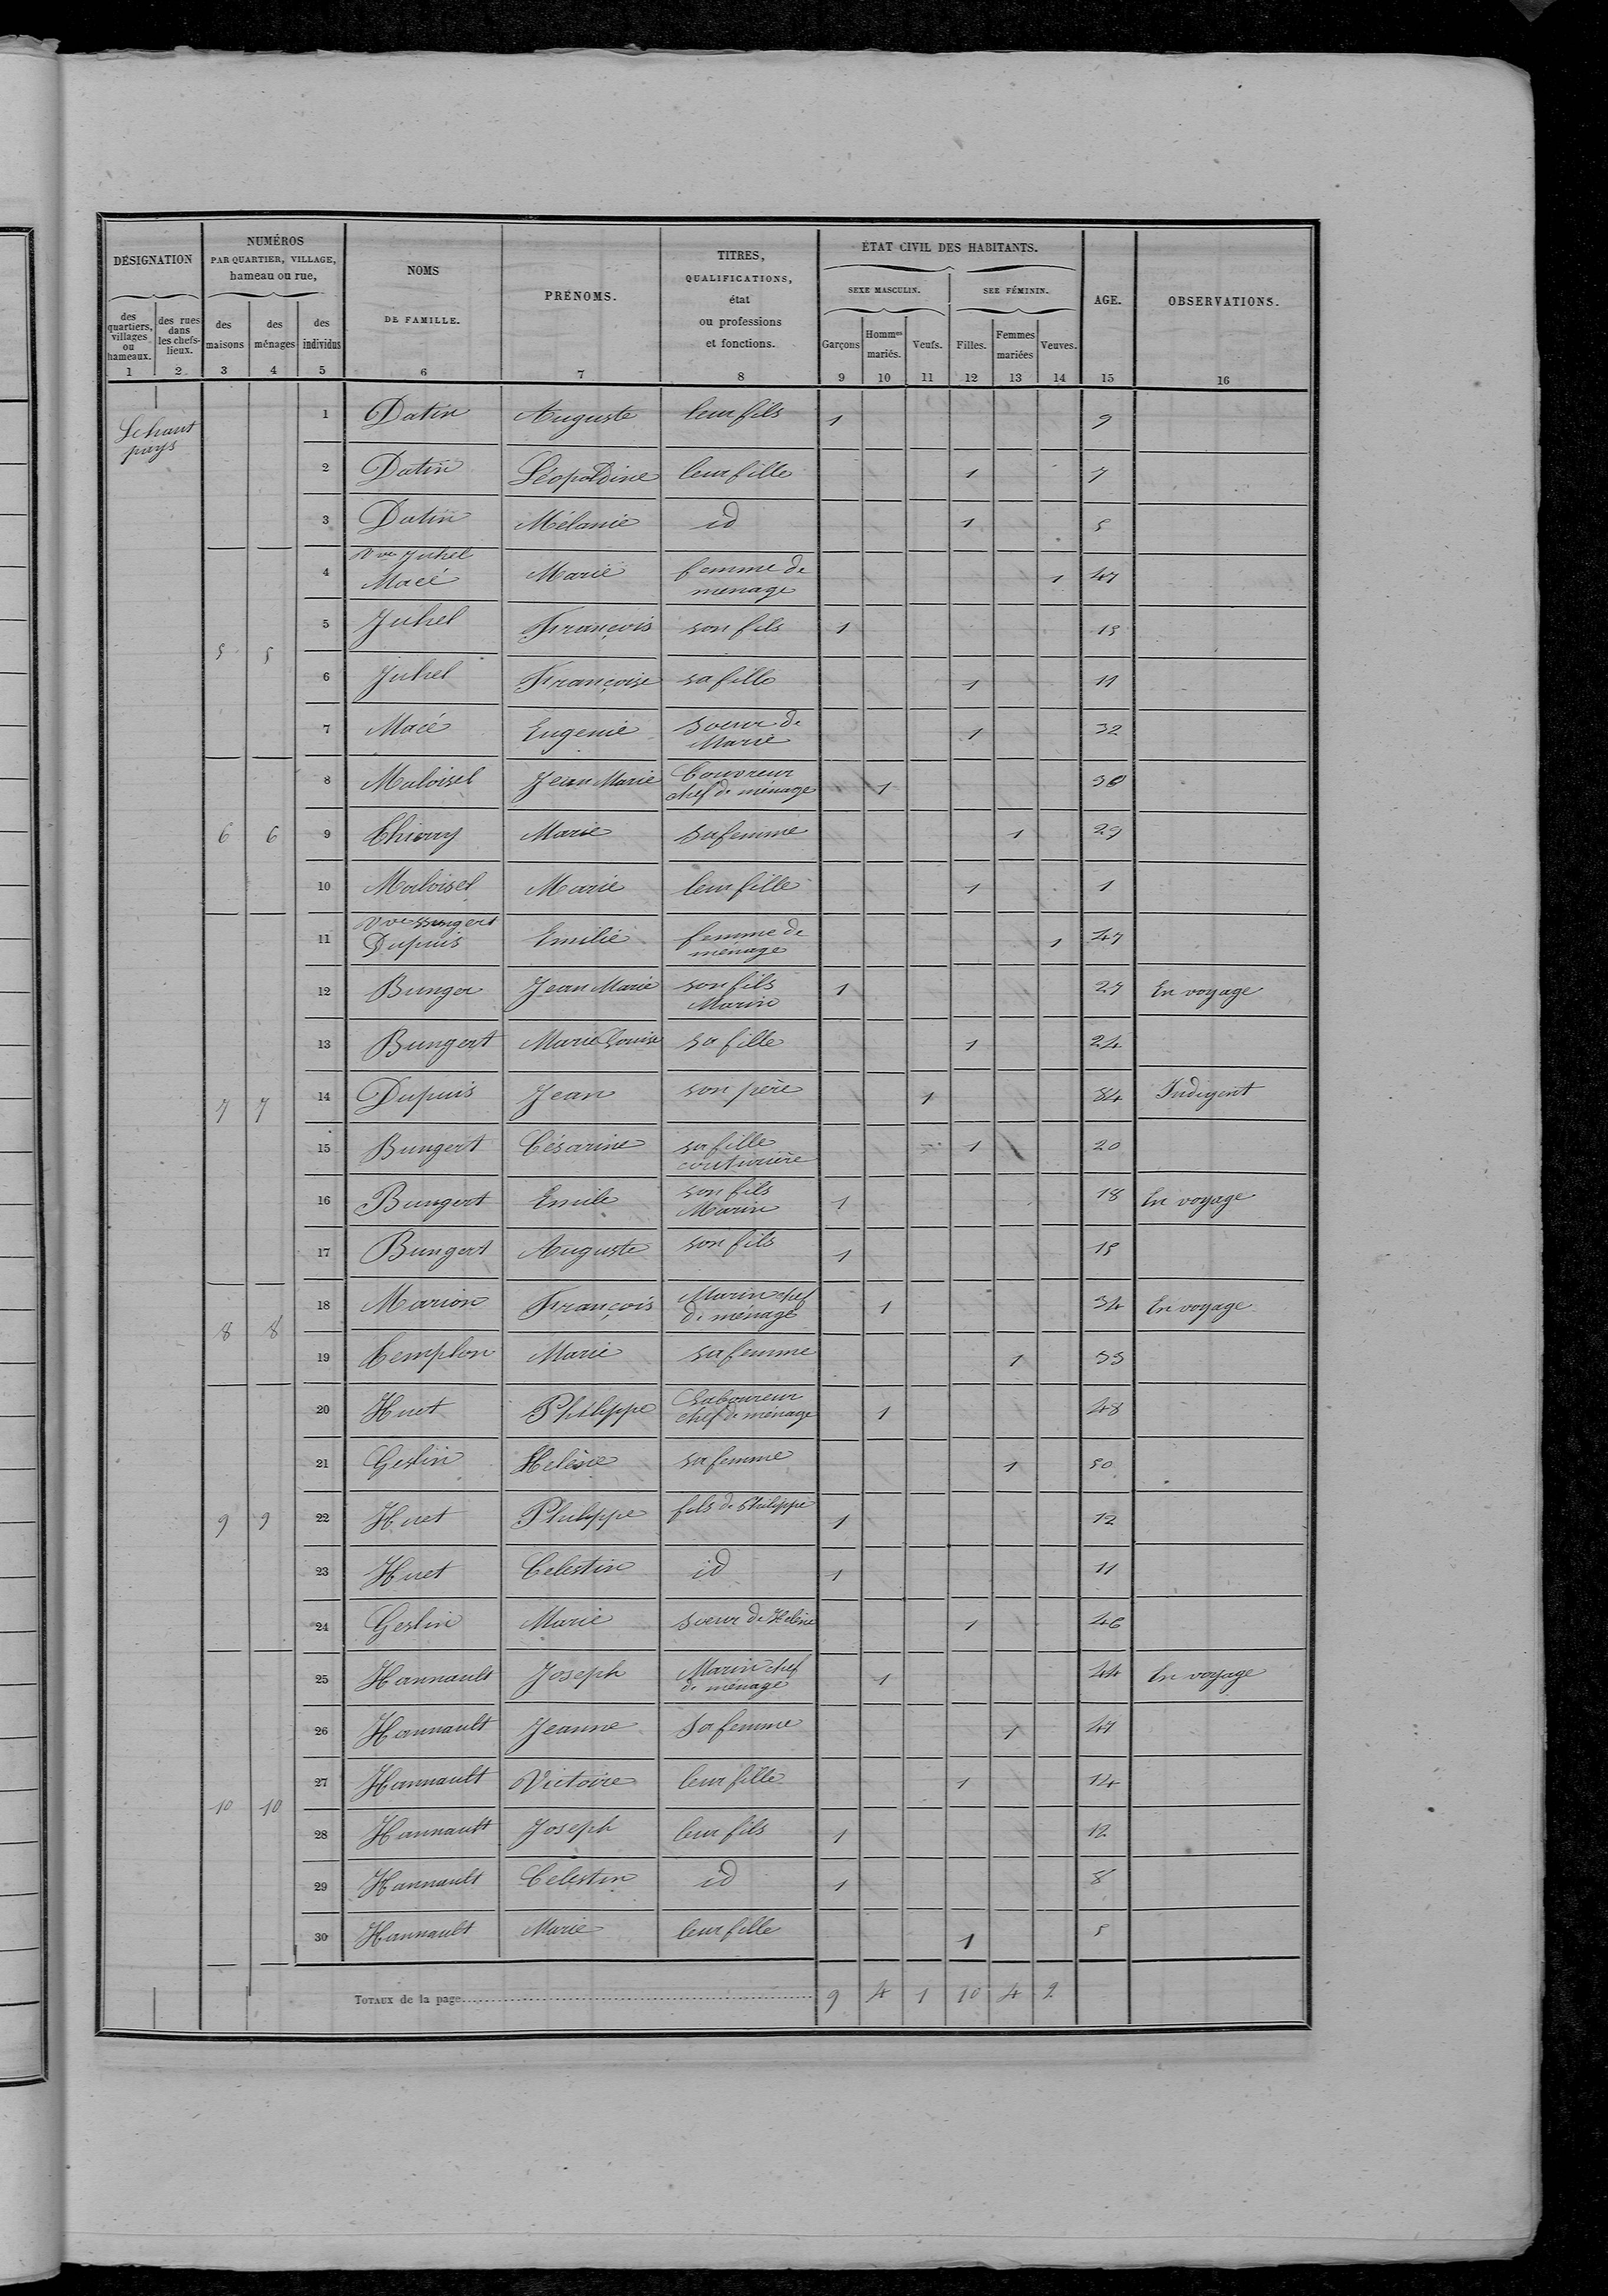 DÉSIGNATION
des quartiers, villages ou hameaux.
des rues dans les chefs-lieux.
NUMÉROS
PAR QUARTIER, VILLAGE,
hameau ou rue,
des maisons
des ménages
des individus
NOMS
DE FAMILLE.
PRÉNOMS.
TITRES,
QUALIFICATIONS,
état
ou professions
et fonctions.
ÉTAT CIVIL DES HABITANTS.
SEXE MASCULIN.
SEE FÉMININ.
Garçons
Hommes mariés.
Veufs.
Filles.
Femmes mariées
Veuves.
AGE.
OBSERVATIONS.
1 2 3 4 5 6 7 8 9 10 11 12 13 14 15 16
Le haut
pays
1 Datin Auguste leur fils 1 9
2 Datin Léopoldine leur fille 1 7
3 Datin Mélanie id 1 5
4 Vve Juhel Macé Marie femme de menage 1 47
5 Juhel François son fils 1 15
5 5
6 Juhel Françoise sa fille 1 11
7 Macé Eugenie soeur de Marie 1 32
8 Maloisel Jean Marie Couvreur chef de ménage 1 30
6 6 9 Thierry Marie sa femme 1 29
10 Maloisel Marie leur fille 1 1
11 Vve Bungert Dupuis Emilie femme de ménage 1 47
12 Bunger Jean Marie son fils Marin 1 27 En voyage
13 Bungert Marie Louise sa fille 1 24
7 7 14 Dupuis Jean son père 1 84 Indigent
15 Bungert Césarine sa fille couturière 1 20
16 Bungert Emile son fils Marin 1 18 En voyage
17 Bungert Auguste son fils 1 15
18 Marion François Marin chef de ménage 1 34 En voyage
8 8
19 Templon Marie sa femme 1 33
20 Huet Philippe Laboureur chef de ménage 1 48
21 Geslin Helène sa femme 1 50
9 9 22 Huet Philippe fils de Philippe 1 12
23 Huet Celestin id 1 11
24 Geslin Marie soeur de Helène 1 46
25 Hannault Joseph Marin chef de ménage 1 44 En voyage
26 Hannault Jeanne sa femme 1 47
27 Hannault Victoire leur fille 1 14
10 10
28 Hannault Joseph leur fils 1 12
29 Hannault Celestin id 1 8
30 Hannault Marie leur fille 1 5
TOTAUX de la page 9 4 1 10 4 2